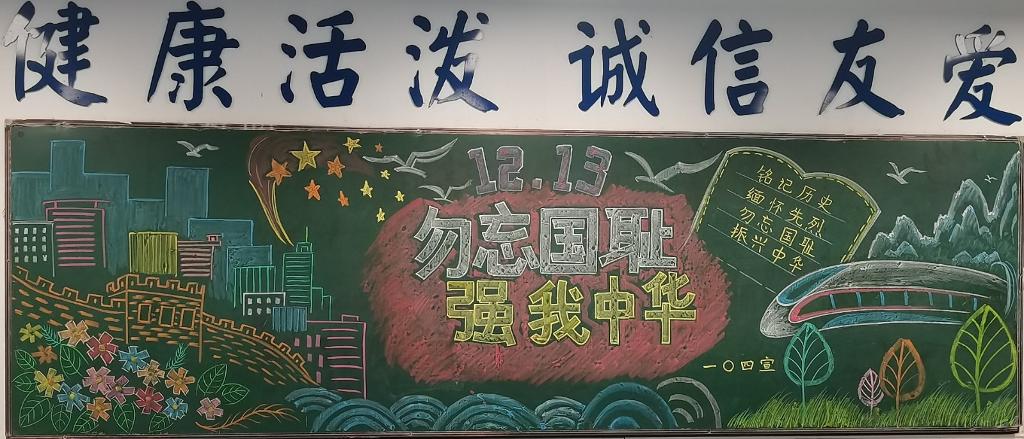 健康活泼 诚信友爱
12.13
勿忘国耻
强我中华
铭记历史
缅怀先烈
勿忘国耻
振兴中华
一〇四宣